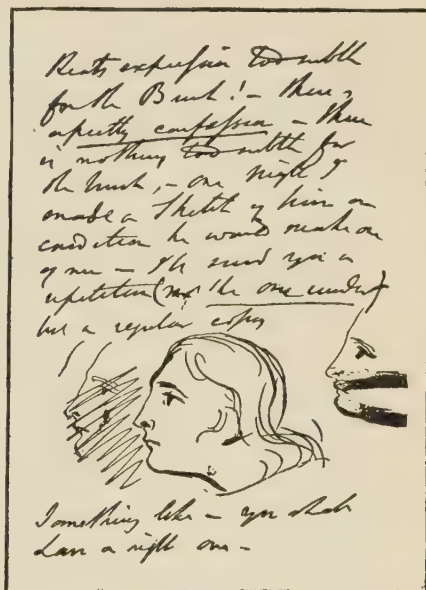 Keats expression too subtle
for the Brush! – there's
a pretty confession – there
is nothing too subtle for
the brush, – one night I
made a Sketch of him on
condition he would make one
of me – I'll send you a
repetition (not the one under)
but a regular copy
Something like – you shall
have a right one –